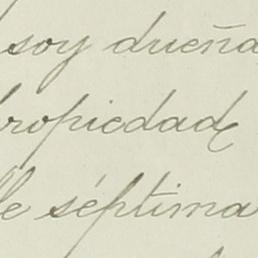 soy dueña
propiedad
séptima